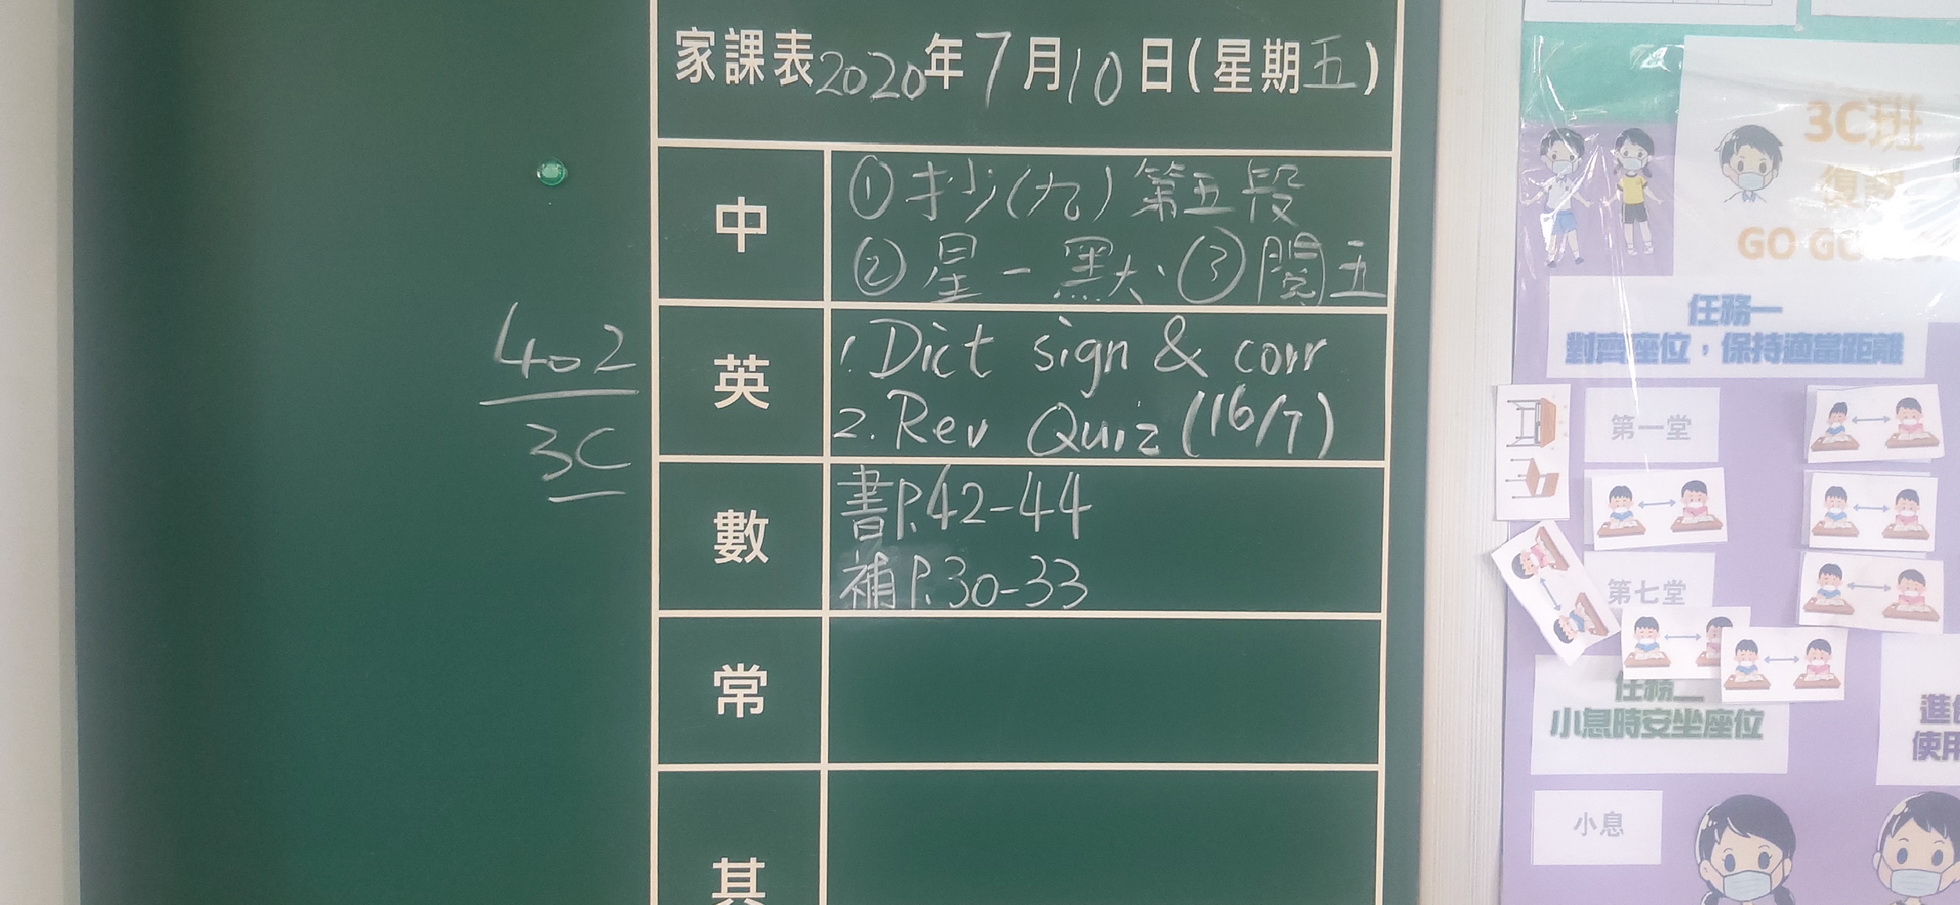 家課表2020年7月10日(星期五)
中
①抄(九)第五段
②星一默、③閱五
英
1. Dict sign & corr
2. Rev Quiz (16/7)
數
書P.42-44
補P.30-33
常
其
402
3C
3C班
GO GO
任務一
對齊座位，保持適當距離
第一堂
第七堂
任務二
小息時安坐座位
小息
使用